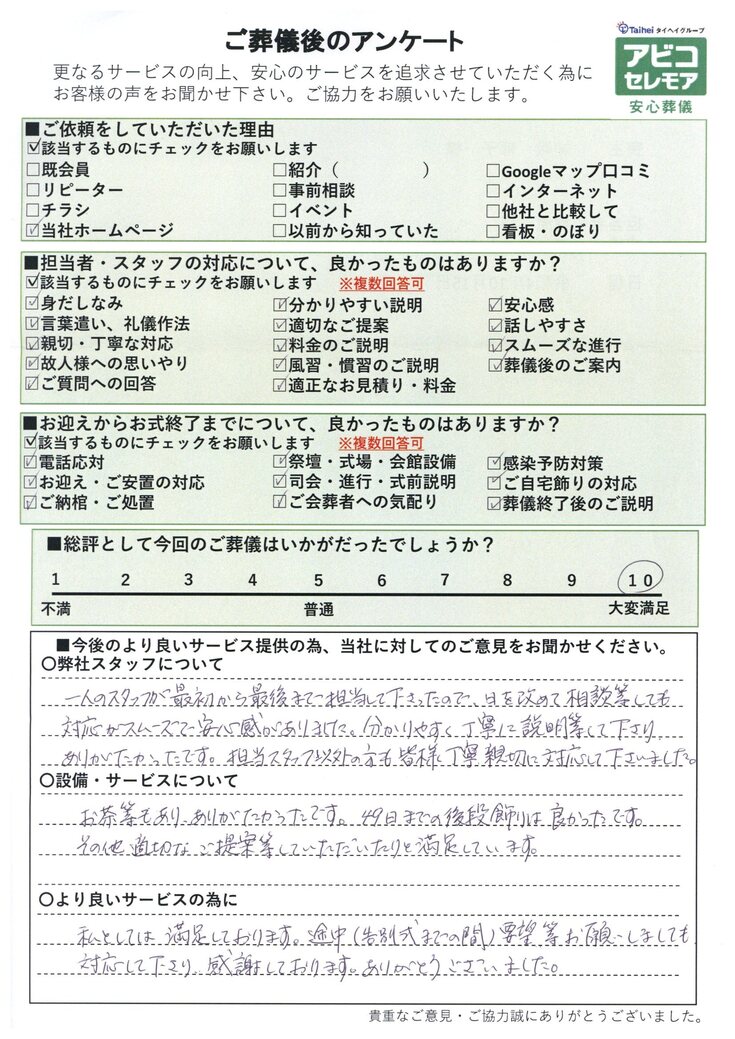 ご葬儀後のアンケート
Taihei タイヘイグループ
アビコ
セレモア
安心葬儀
更なるサービスの向上、安心のサービスを追求させていただく為に
お客様の声をお聞かせ下さい。ご協力をお願いいたします。
■ご依頼をしていただいた理由
☑該当するものにチェックをお願いします
□既会員 □紹介（　　　　） □Googleマップ口コミ
□リピーター □事前相談 □インターネット
□チラシ □イベント □他社と比較して
☑当社ホームページ □以前から知っていた □看板・のぼり
■担当者・スタッフの対応について、良かったものはありますか？
☑該当するものにチェックをお願いします ※複数回答可
☑身だしなみ ☑分かりやすい説明 ☑安心感
☑言葉遣い、礼儀作法 ☑適切なご提案 ☑話しやすさ
☑親切・丁寧な対応 ☑料金のご説明 ☑スムーズな進行
☑故人様への思いやり ☑風習・慣習のご説明 ☑葬儀後のご案内
☑ご質問への回答 ☑適正なお見積り・料金
■お迎えからお式終了までについて、良かったものはありますか？
☑該当するものにチェックをお願いします ※複数回答可
☑電話応対 ☑祭壇・式場・会館設備 ☑感染予防対策
☑お迎え・ご安置の対応 ☑司会・進行・式前説明 ☑ご自宅飾りの対応
☑ご納棺・ご処置 ☑ご会葬者への気配り ☑葬儀終了後のご説明
■総評として今回のご葬儀はいかがだったでしょうか？
1 2 3 4 5 6 7 8 9 10
不満 普通 大変満足
■今後のより良いサービス提供の為、当社に対してのご意見をお聞かせください。
〇弊社スタッフについて
一人のスタッフが最初から最後まで担当して下さったので、日を改めて相談等しても
対応がスムーズで安心感がありました。分かりやすく丁寧に説明等して下さり
ありがたかったです。担当スタッフ以外の方も皆様丁寧親切に対応して下さいました。
〇設備・サービスについて
お茶等もあり、ありがたかったです。49日までの後段飾りは良かったです。
その他適切なご提案等していただいたりと満足しています。
〇より良いサービスの為に
私としては満足しております。途中(告別式までの間)要望等お願いしましても
対応して下さり、感謝しております。ありがとうございました。
貴重なご意見・ご協力誠にありがとうございました。